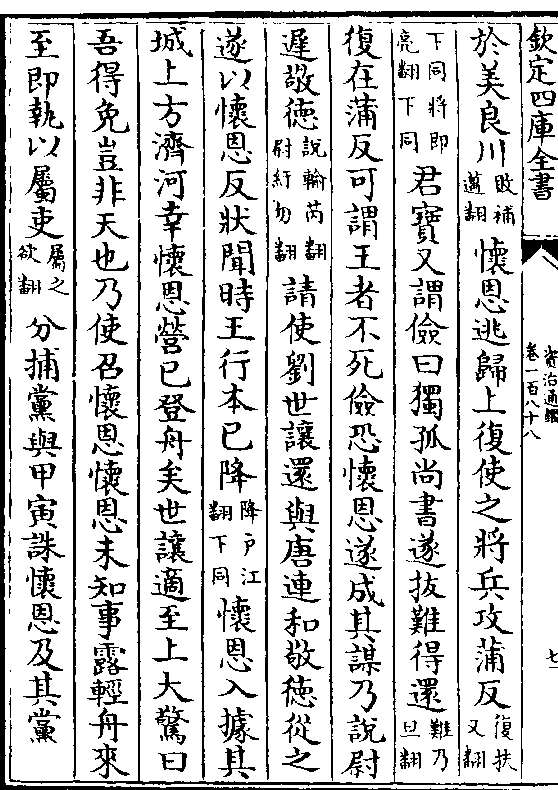 欽定四庫全書
資治通鑑
卷一百八十八
七
於美良川敗補邁翻懷恩逃歸上復使之將兵攻蒲反復扶又翻
下同將即亮翻下同君寶又謂儉曰獨孤尚書遂拔難得還難乃旦翻
復在蒲反可謂王者不死儉恐懷恩遂成其謀乃說尉
遲敬徳說輸芮翻尉紆勿翻請使劉世讓還與唐連和敬徳從之
遂以懷恩反狀聞時王行本已降降戶江翻下同懷恩入據其
城上方濟河幸懷恩營已登舟矣世讓適至上大驚曰
吾得免豈非天也乃使召懷恩懷恩未知事露輕舟來
至即執以屬吏屬之欲翻分捕黨與甲寅誅懷恩及其黨